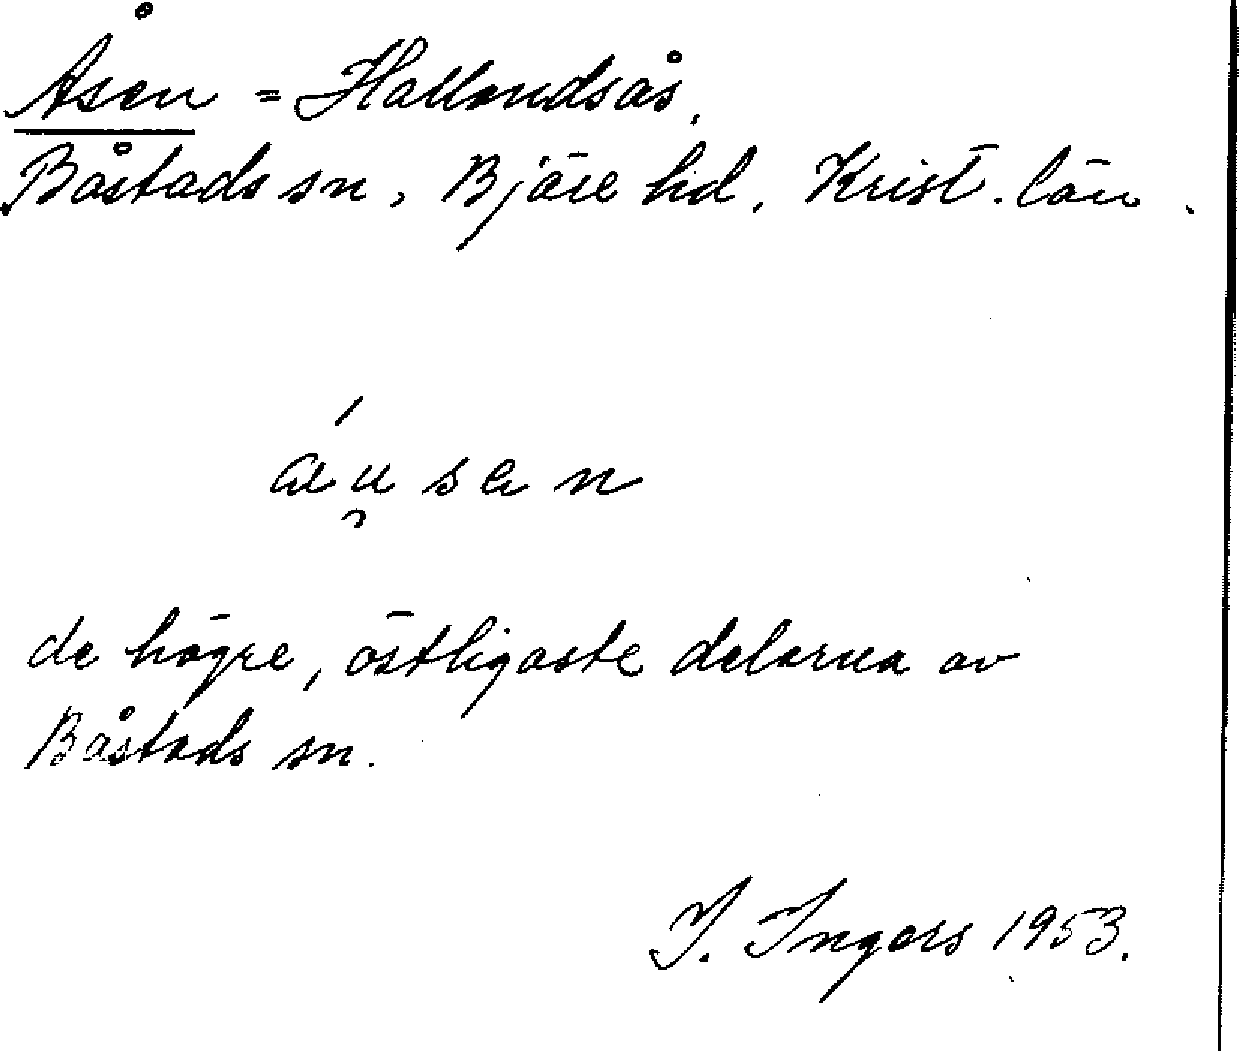 Åsen = Hallandsås,
Båstads sn, Bjäre hd, Krist. län.
áu̯sen
de högre, östligaste delarna av
Båstads sn.
I. Ingers 1953.